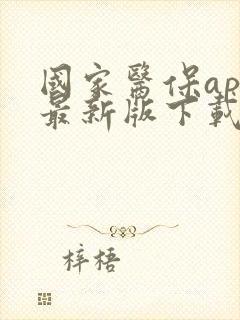 國家醫保ap
最新版下載
梓梧